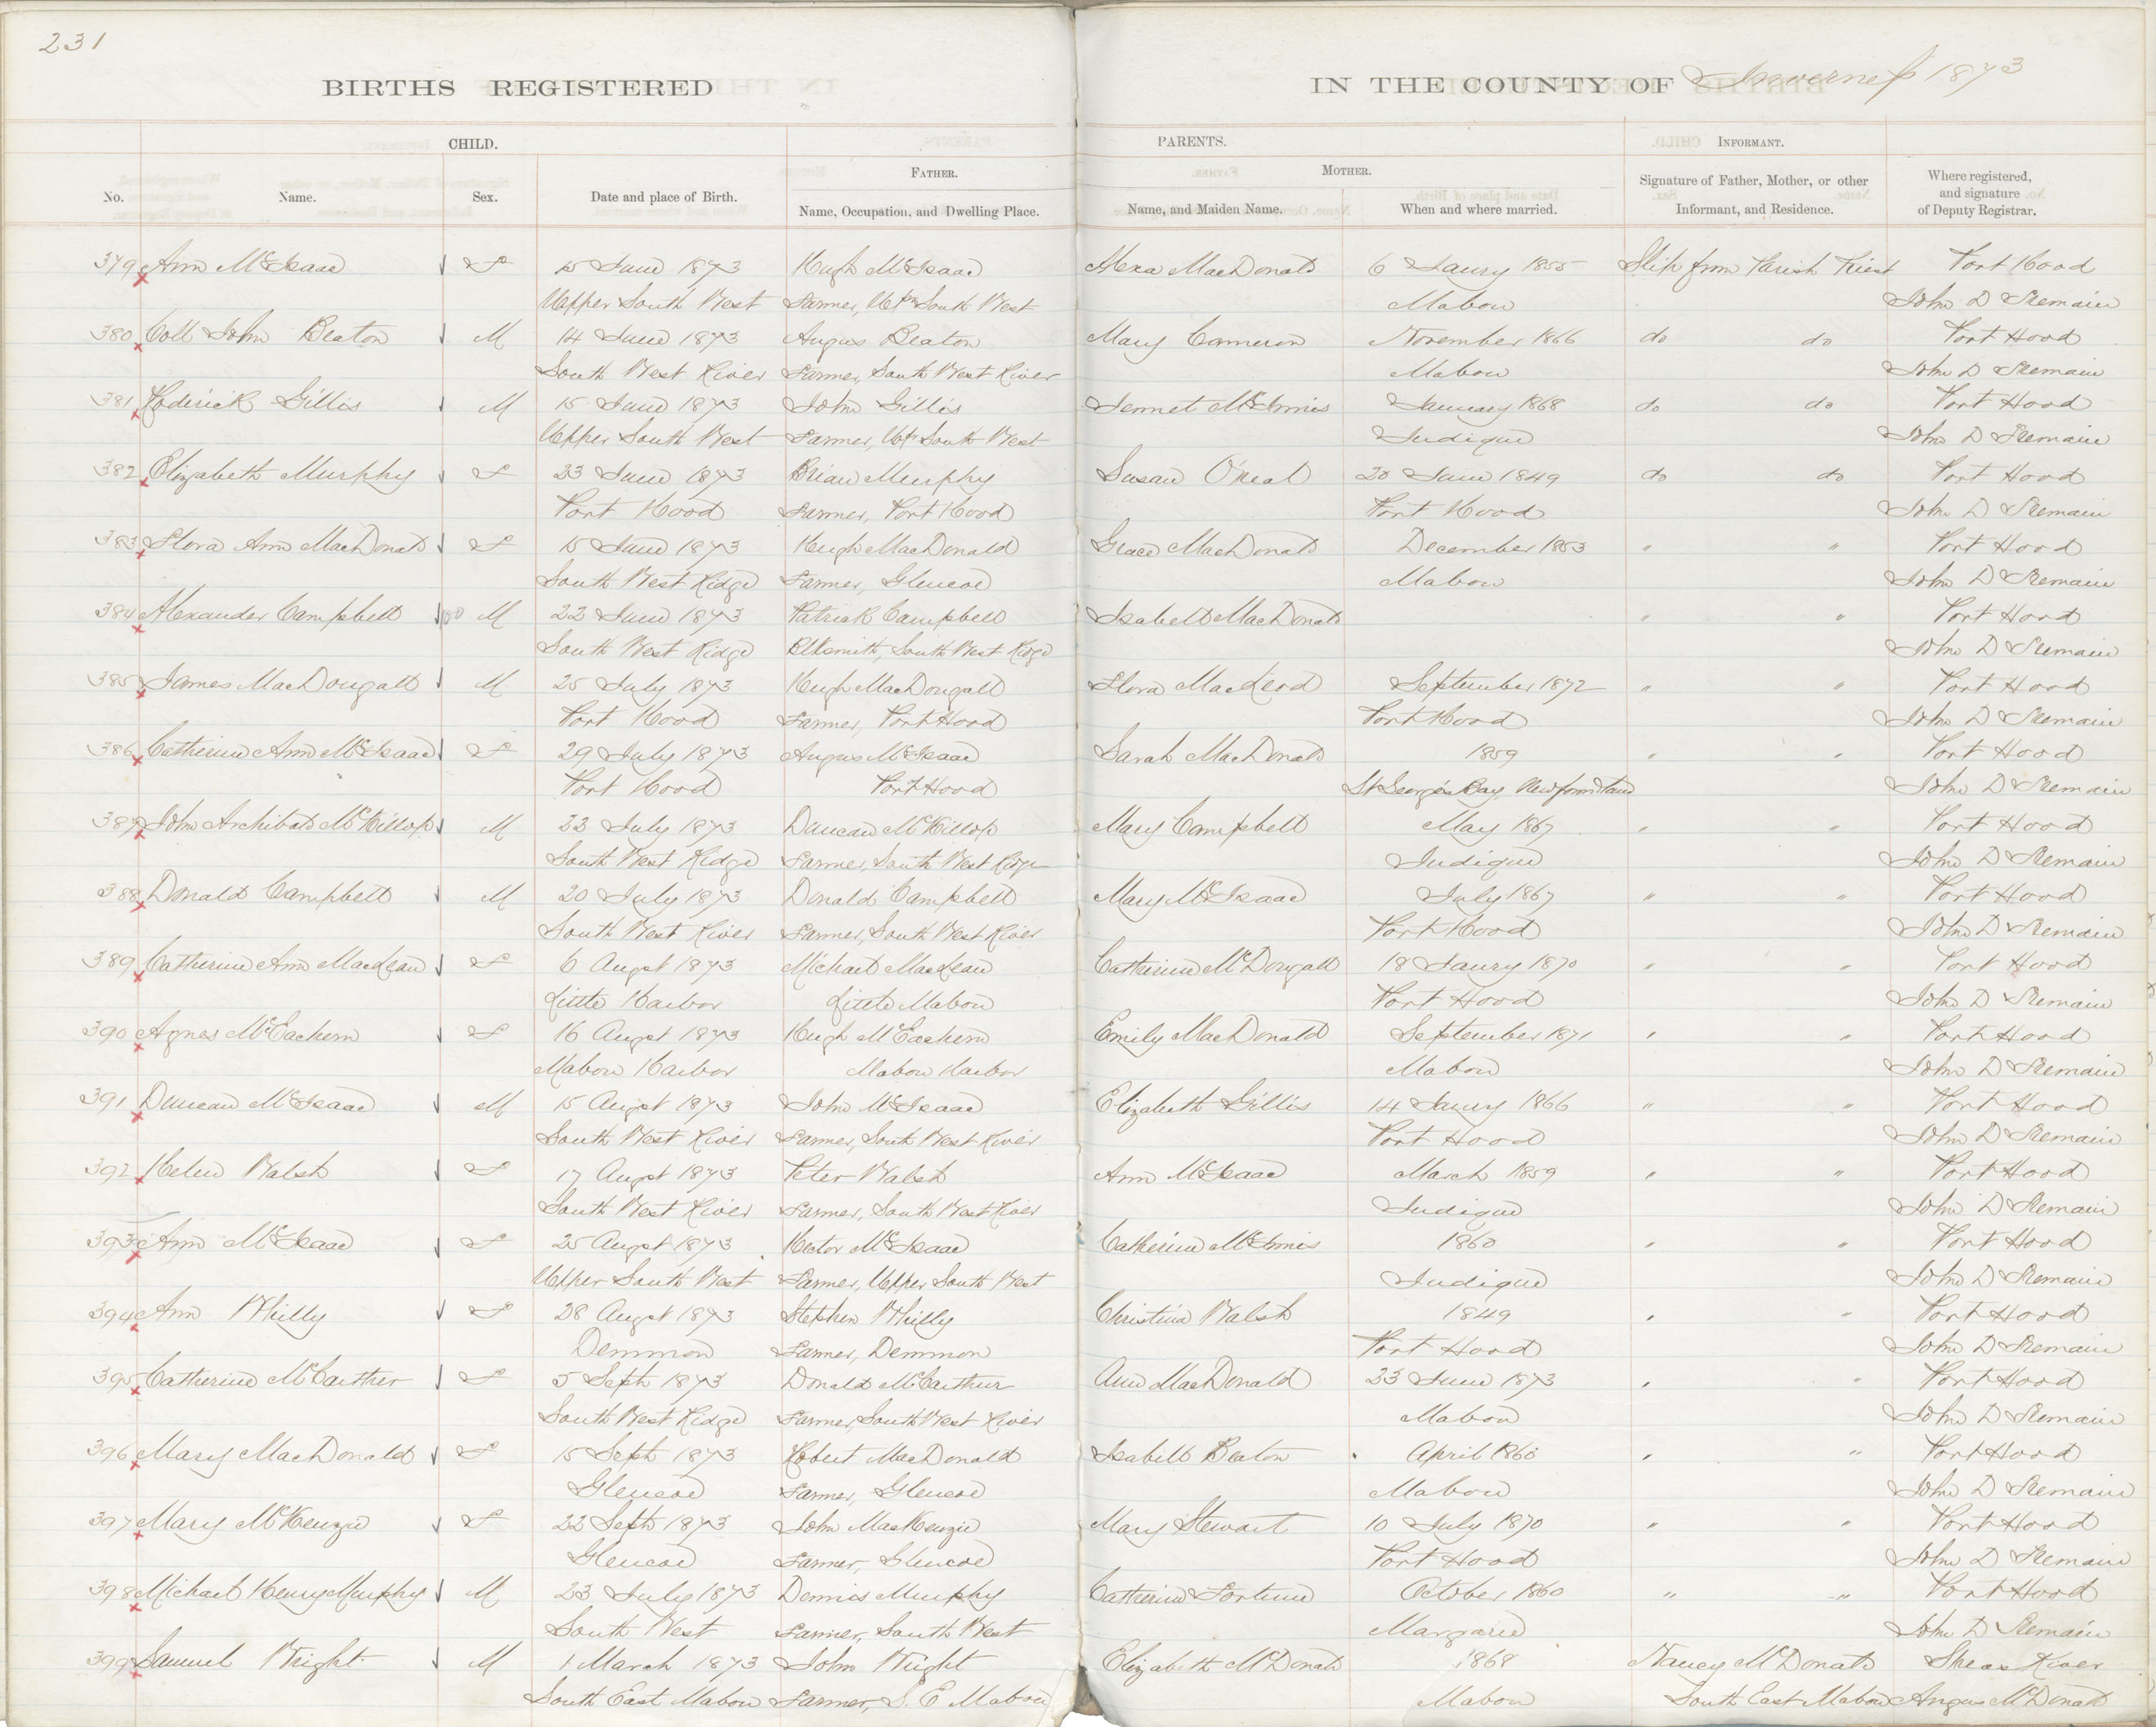 231
BIRTHS REGISTERED IN THE COUNTY OF Inverness 1873
CHILD. PARENTS. INFORMANT.
No. Name. Sex. Date and place of Birth. FATHER. Name, Occupation, and Dwelling Place. MOTHER. Name, and Maiden Name. When and where married. Signature of Father, Mother, or other Informant, and Residence. Where registered, and signature of Deputy Registrar.
379 Ann McIsaac F 15 June 1873 Hugh McIsaac Alexa MacDonald 6 Janry 1855 Slip from Parish Priest Port Hood
Upper South West Farmer, Upr South West Mabou John D Tremain
380 Coll John Beaton M 14 June 1873 Angus Beaton Mary Cameron November 1866 do do Port Hood
South West River Farmer, South West River Mabou John D Tremain
381 Roderick Gillis M 15 June 1873 John Gillis Jennet McInnis January 1868 do do Port Hood
Upper South West Farmer, Up South West Judique John D Tremain
382 Elizabeth Murphy F 23 June 1873 Brian Murphy Susan O'Neal 20 June 1849 do do Port Hood
Port Hood Farmer, Port Hood Port Hood John D Tremain
383 Flora Ann MacDonald F 15 June 1873 Hugh MacDonald Grace MacDonald December 1853 " " Port Hood
South West Ridge Farmer, Glencoe Mabou John D Tremain
384 Alexander Campbell M 22 June 1873 Patrick Campbell Isabell MacDonald " " Port Hood
South West Ridge Blksmith, South West Ridge John D Tremain
385 James MacDougall M 25 July 1873 Hugh MacDougall Flora MacLeod September 1872 " " Port Hood
Port Hood Farmer, Port Hood Port Hood John D Tremain
386 Catherine Ann McIsaac F 29 July 1873 Angus McIsaac Sarah MacDonald 1859 " " Port Hood
Port Hood Port Hood St George's Bay, Newfoundland John D Tremain
387 John Archibald McKillop M 22 July 1873 Duncan McKillop Mary Campbell May 1867 " " Port Hood
South West Ridge Farmer, South West Ridge Judique John D Tremain
388 Donald Campbell M 20 July 1873 Donald Campbell Mary McIsaac July 1867 " " Port Hood
South West River Farmer, South West River Port Hood John D Tremain
389 Catherine Ann MacLean F 6 Augst 1873 Michael MacLean Catherine McDougall 18 Janry 1870 " " Port Hood
Little Harbor Little Mabou Port Hood John D Tremain
390 Agnes McEachern F 16 Augst 1873 Hugh McEachern Emily MacDonald September 1871 " " Port Hood
Mabou Harbor Mabou Harbor Mabou John D Tremain
391 Duncan McIsaac M 15 Augst 1873 John McIsaac Elizabeth Gillis 14 Janry 1866 " " Port Hood
South West River Farmer, South West River Port Hood John D Tremain
392 Helen Walsh F 17 Augst 1873 Peter Walsh Ann McIsaac March 1859 " " Port Hood
South West River Farmer, South West River Judique John D Tremain
393 Ann McIsaac F 25 Augst 1873 Hector McIsaac Catherine McInnis 1860 " " Port Hood
Upper South West Farmer, Upper South West Judique John D Tremain
394 Ann Whilly F 28 Augst 1873 Stephen Whilly Christina Walsh 1849 " " Port Hood
Demmon Farmer, Demmon Port Hood John D Tremain
395 Catherine McCarther F 5 Sept 1873 Donald McCarthur Ann MacDonald 23 June 1873 " " Port Hood
South West Ridge Farmer, South West River Mabou John D Tremain
396 Mary MacDonald F 15 Sept 1873 Robert MacDonald Isabell Beaton April 1860 " " Port Hood
Glencoe Farmer, Glencoe Mabou John D Tremain
397 Mary McKenzie F 22 Sept 1873 John MacKenzie Mary Stewart 10 July 1870 " " Port Hood
Glencoe Farmer, Glencoe Port Hood John D Tremain
398 Michael Henry Murphy M 23 July 1873 Dennis Murphy Catherine Fortune October 1860 " " Port Hood
South West Farmer, South West Margaree John D Tremain
399 Samuel Wright M 1 March 1873 John Wright Elizabeth McDonald 1868 Nancy McDonald Skeas River
South East Mabou Farmer, S. E Mabou Mabou South East Mabou Angus McDonald